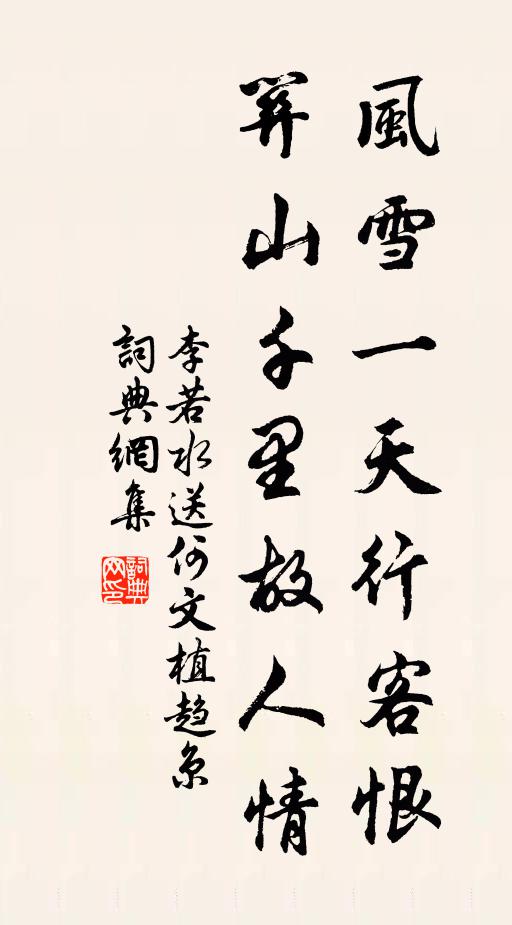 風雪一天行客恨
關山千里故人情
李若水送何文植趨京
詞典網集
詞典
网印